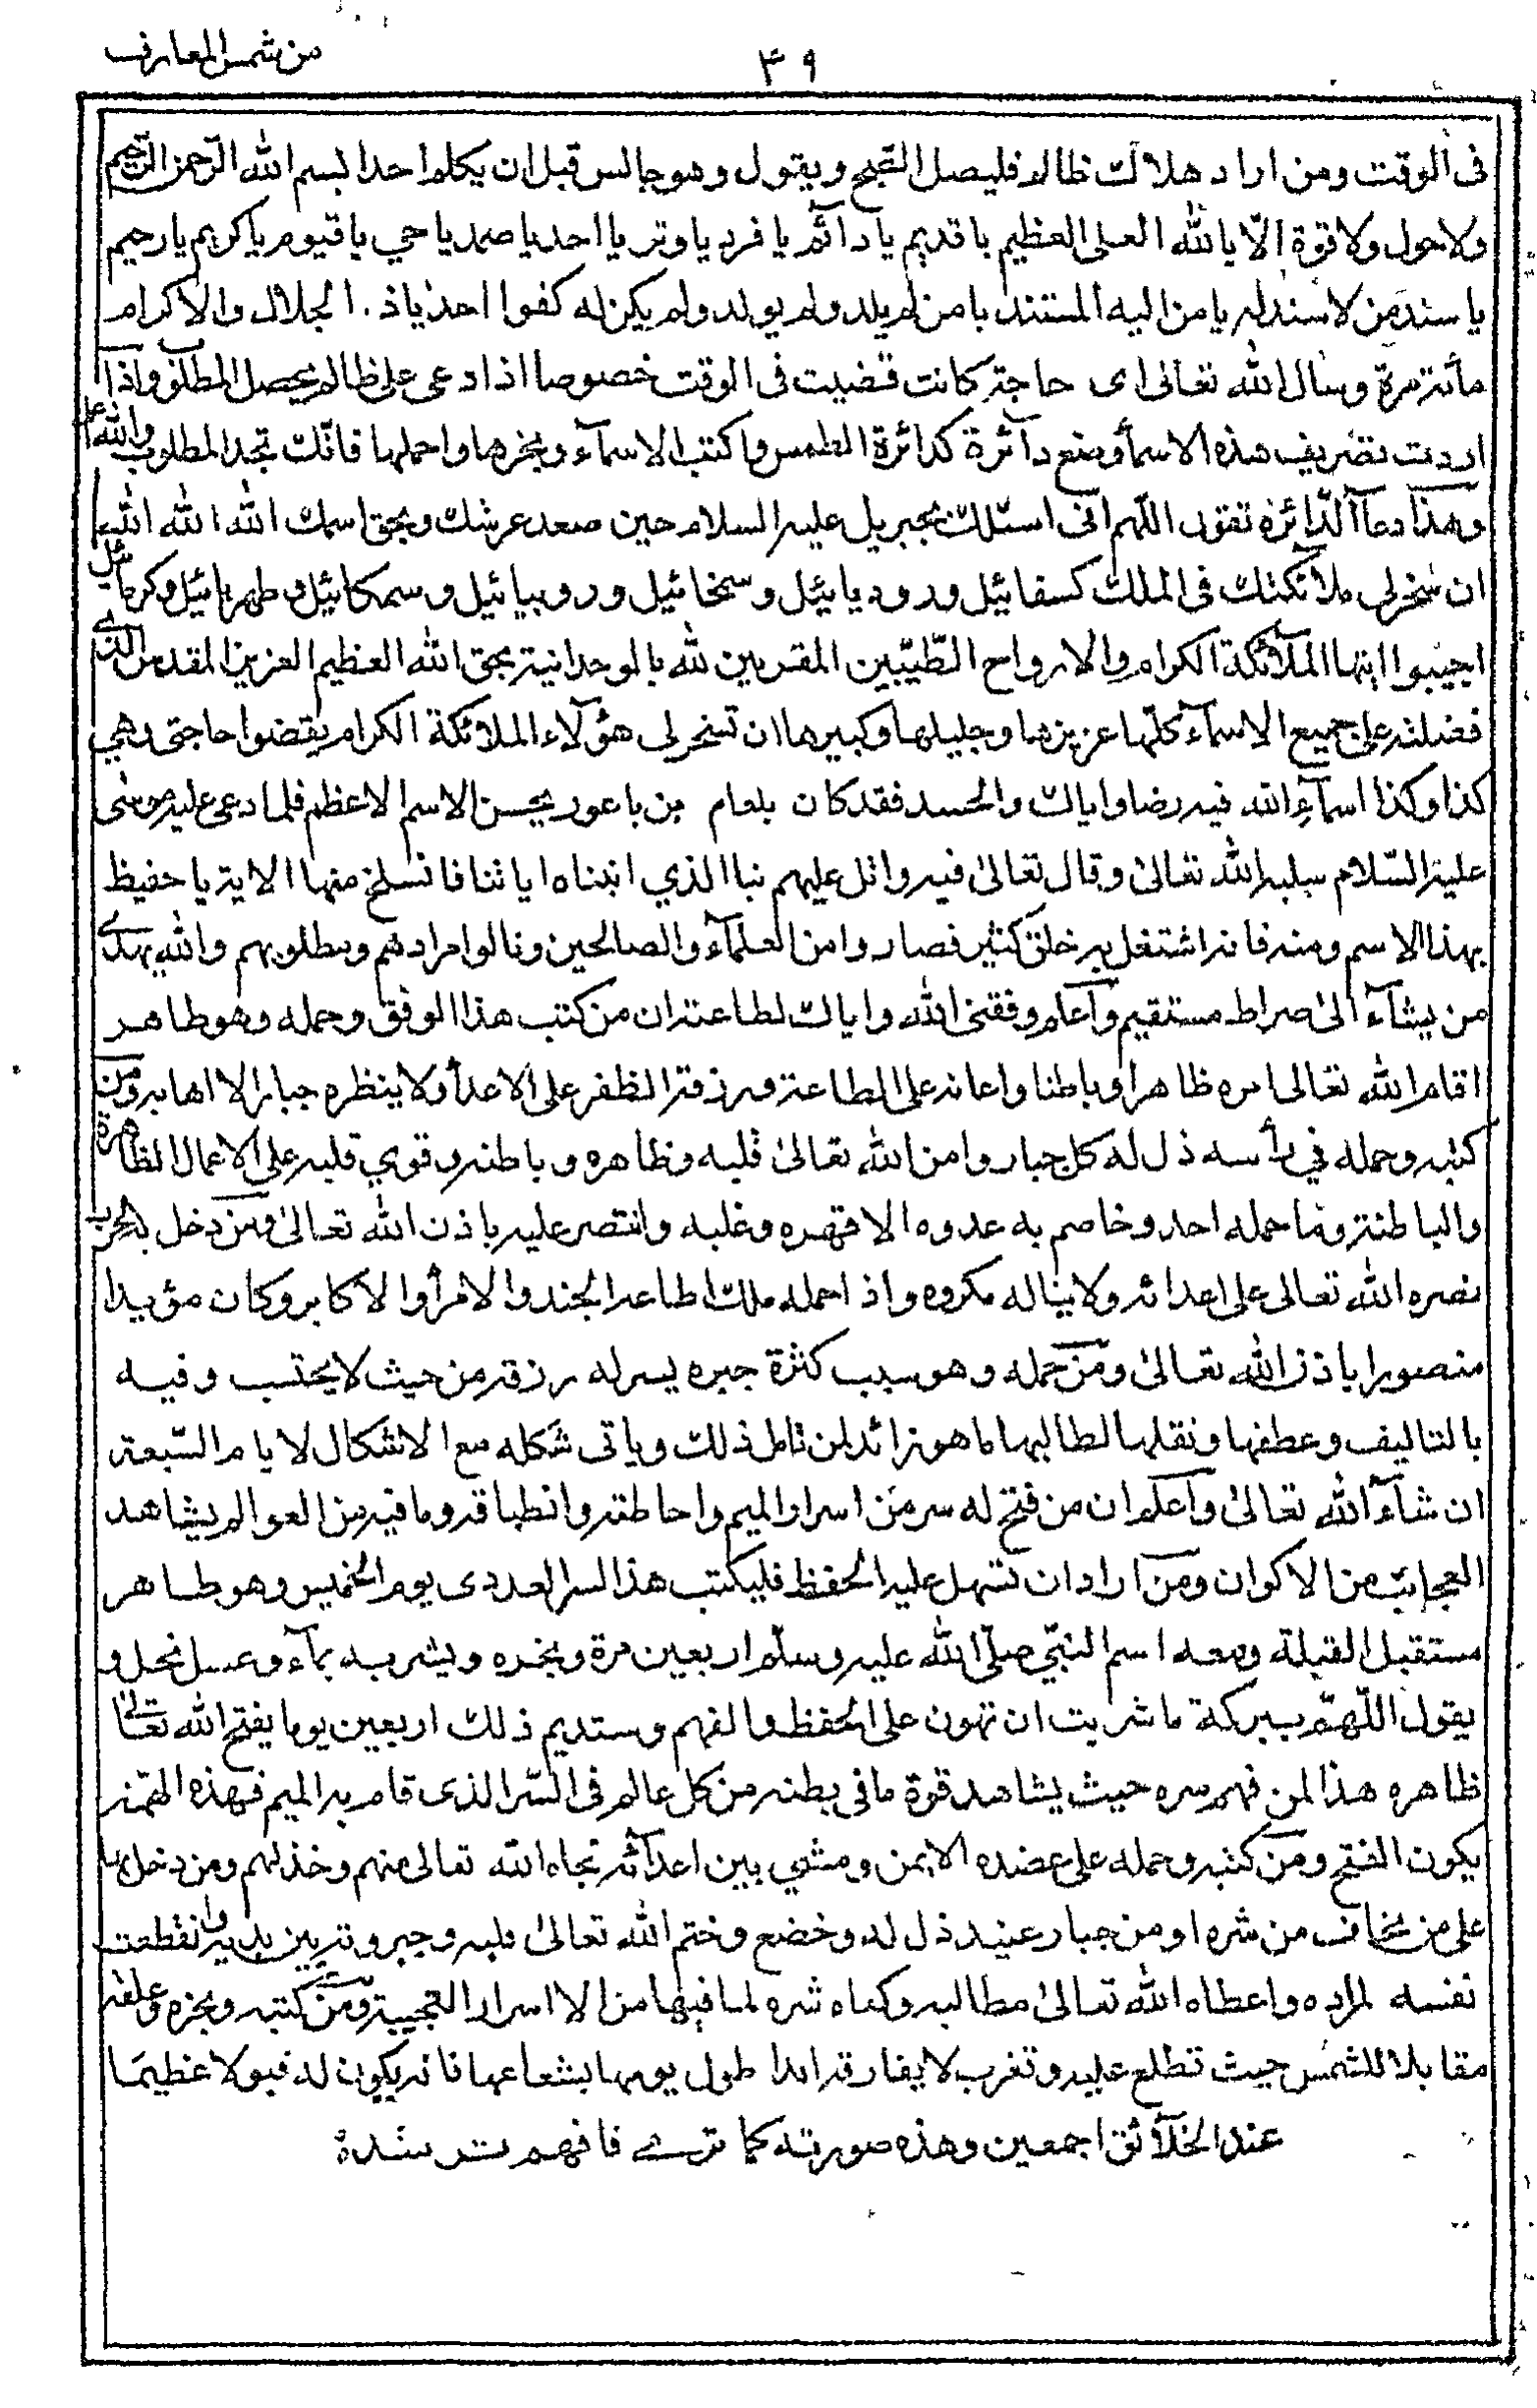 من شمس المعارف
٣٩
فى الوقت ومن اراد هلاك ظالم فليصل الصبح ويقول وهو جالس قبل ان يكلم احدا بسم الله الرّحمن الرّحيم
ولا حول ولا قوة الّا بالله العلى العظيم يا قديم يا دآئم يا فرد يا وتر يا احد يا صمد يا حي يا قيوم يا كريم يا رحيم
يا سند من لا سند له يا من اليه المستند يا من لم يلد ولم يولد ولم يكن له كفوا احد يا ذا الجلال والاكرام
مأتة مرة وسال الله تعالى اى حاجة كانت قضيت فى الوقت خصوصا اذا دعى على ظالم يحصل المطلوب واذا
اردت تصريف هذه الاسمآ وضع دآئرة كدائرة الطمس واكتب الاسمآء وبخرها واحملها فانّك تجد المطلوب والله اعلم
وهذا دعآ الدّائرة تقول اللّهم انّى اسئلك بجبريل عليه السلام حين صعد عرشك وبحق اسمك الله الله الله
ان تسخر لى ملآئكتك فى الملك كسفائيل ورود يائيل وسخائيل وروبيائيل وسمكائيل وطهريائيل وكرمائيل
اجيبوا ايتها الملآئكة الكرام والارواح الطّيّبين المقربين لله بالوحدانية بحق الله العظيم العزيز المقدس الذى
فضلته على جميع الاسمآء كلّها عزيزها وجليلها وكبيرها ان تسخر لى هؤلآء الملائكة الكرام يقضوا حاجتى وهي
كذا وكذا اسمآء الله فيه رضا واياك والحسد فقد كان بلعام بن باعور يحسن الاسم الاعظم فلما دعى عليه موسٰى
عليه السّلام سلبه الله تعالىٰ وقال تعالىٰ فيه واتل عليهم نبا الذي اتيناه اياتنا فانسلخ منها الاية يا حفيظ
بهذا الاسم ومنه فانه اشتغل به خلق كثير فصاروا من العلمآء والصالحين ونالوا مرادهم ومطلوبهم والله يهدى
من يشآء الىٰ صراط مستقيم وآعلم وفقنى الله واياك لطاعته ان من كتب هذا الوفق وحمله وهو طاهر
اقام الله تعالى امره ظاهرا وباطنا واعانه على الطاعة ورزقه الظفر على الاعدآ ولا ينظره جبار الا اهابه ومن
كتبه وحمله في رأسه ذل له كل جبار وامن الله تعالىٰ قلبه وظاهره وباطنه وقوي قلبه على الاعمال الظاهرة
والباطنة وما حمله احد وخاصم به عدوه الا قهره وغلبه وانتصر عليه باذن الله تعالىٰ ومن دخل به الحرب
نصره الله تعالى على اعدائه ولا يناله مكروه واذا حمله ملك اطاعه الجند والامرآ والاكابر وكان مؤيدا
منصورا باذن الله تعالىٰ ومن حمله وهو سبب كثرة جبره يسر له رزقه من حيث لا يحتسب وفيه
بالتاليف وعطفها ونقلها لطالبها ما هو زائد لمن تامل ذلك وياتى شكله مع الاشكال لايام السّبعة
ان شآء الله تعالىٰ وآعلم ان من فتح له سر من اسرار الميم واحاطته وانطباقه وما فيه من العوالم يشاهد
العجائب من الاكوان ومن اراد ان تسهل عليه الحفظ فليكتب هذا السر العددى يوم الخميس وهو طاهر
مستقبل القبلة ومعه اسم النبىّ صلّى الله عليه وسلّم اربعين مرة وبخره ويشربه بمآء وعسل نحل و
يقول اللّهمّ ببركة ما شربت ان تهون على الحفظ والفهم وستديم ذلك اربعين يوما يفتح الله تعالىٰ
ظاهره هذا لمن فهم سره حيث يشاهد قوة ما فى بطنه من كل عالم فى السّر الذى قام به الميم فهذه الهمّة
يكون الفتح ومن كتبه وحمله على عضده الايمن ومشى بين اعدآئه نجاه الله تعالى منهم وخذلهم ومن دخل به
على من يخاف من شره او من جبار عنيد ذل له وخضع وختم الله تعالىٰ قلبه وجبروته بين يديه وانقطعت
نفسه لمراده واعطاه الله تعالىٰ مطالبه وكفاه شره لما فيها من الاسرار العجيبة ومن كتبه وبخره وعلقه
مقابلا للشمس حيث تطلع عليه وتغرب لا يفارقه ابدا طول يومها بشعاعها فانه يكون له قبولا عظيمًا
عند الخلآئق اجمعين وهذه صورته كما ترى فافهم ترشده